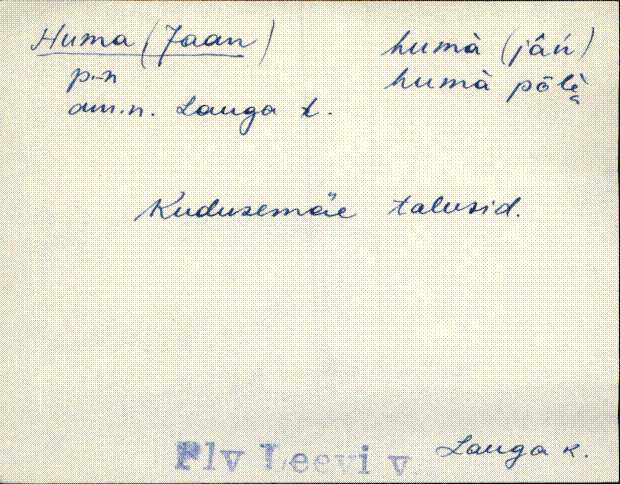 Huma (Jaan) humà (jâń)
p-n humà põlè̬
am.n. Lauga t.
Kudusemäe talusid.
Plv Leevi v. Lauga k.